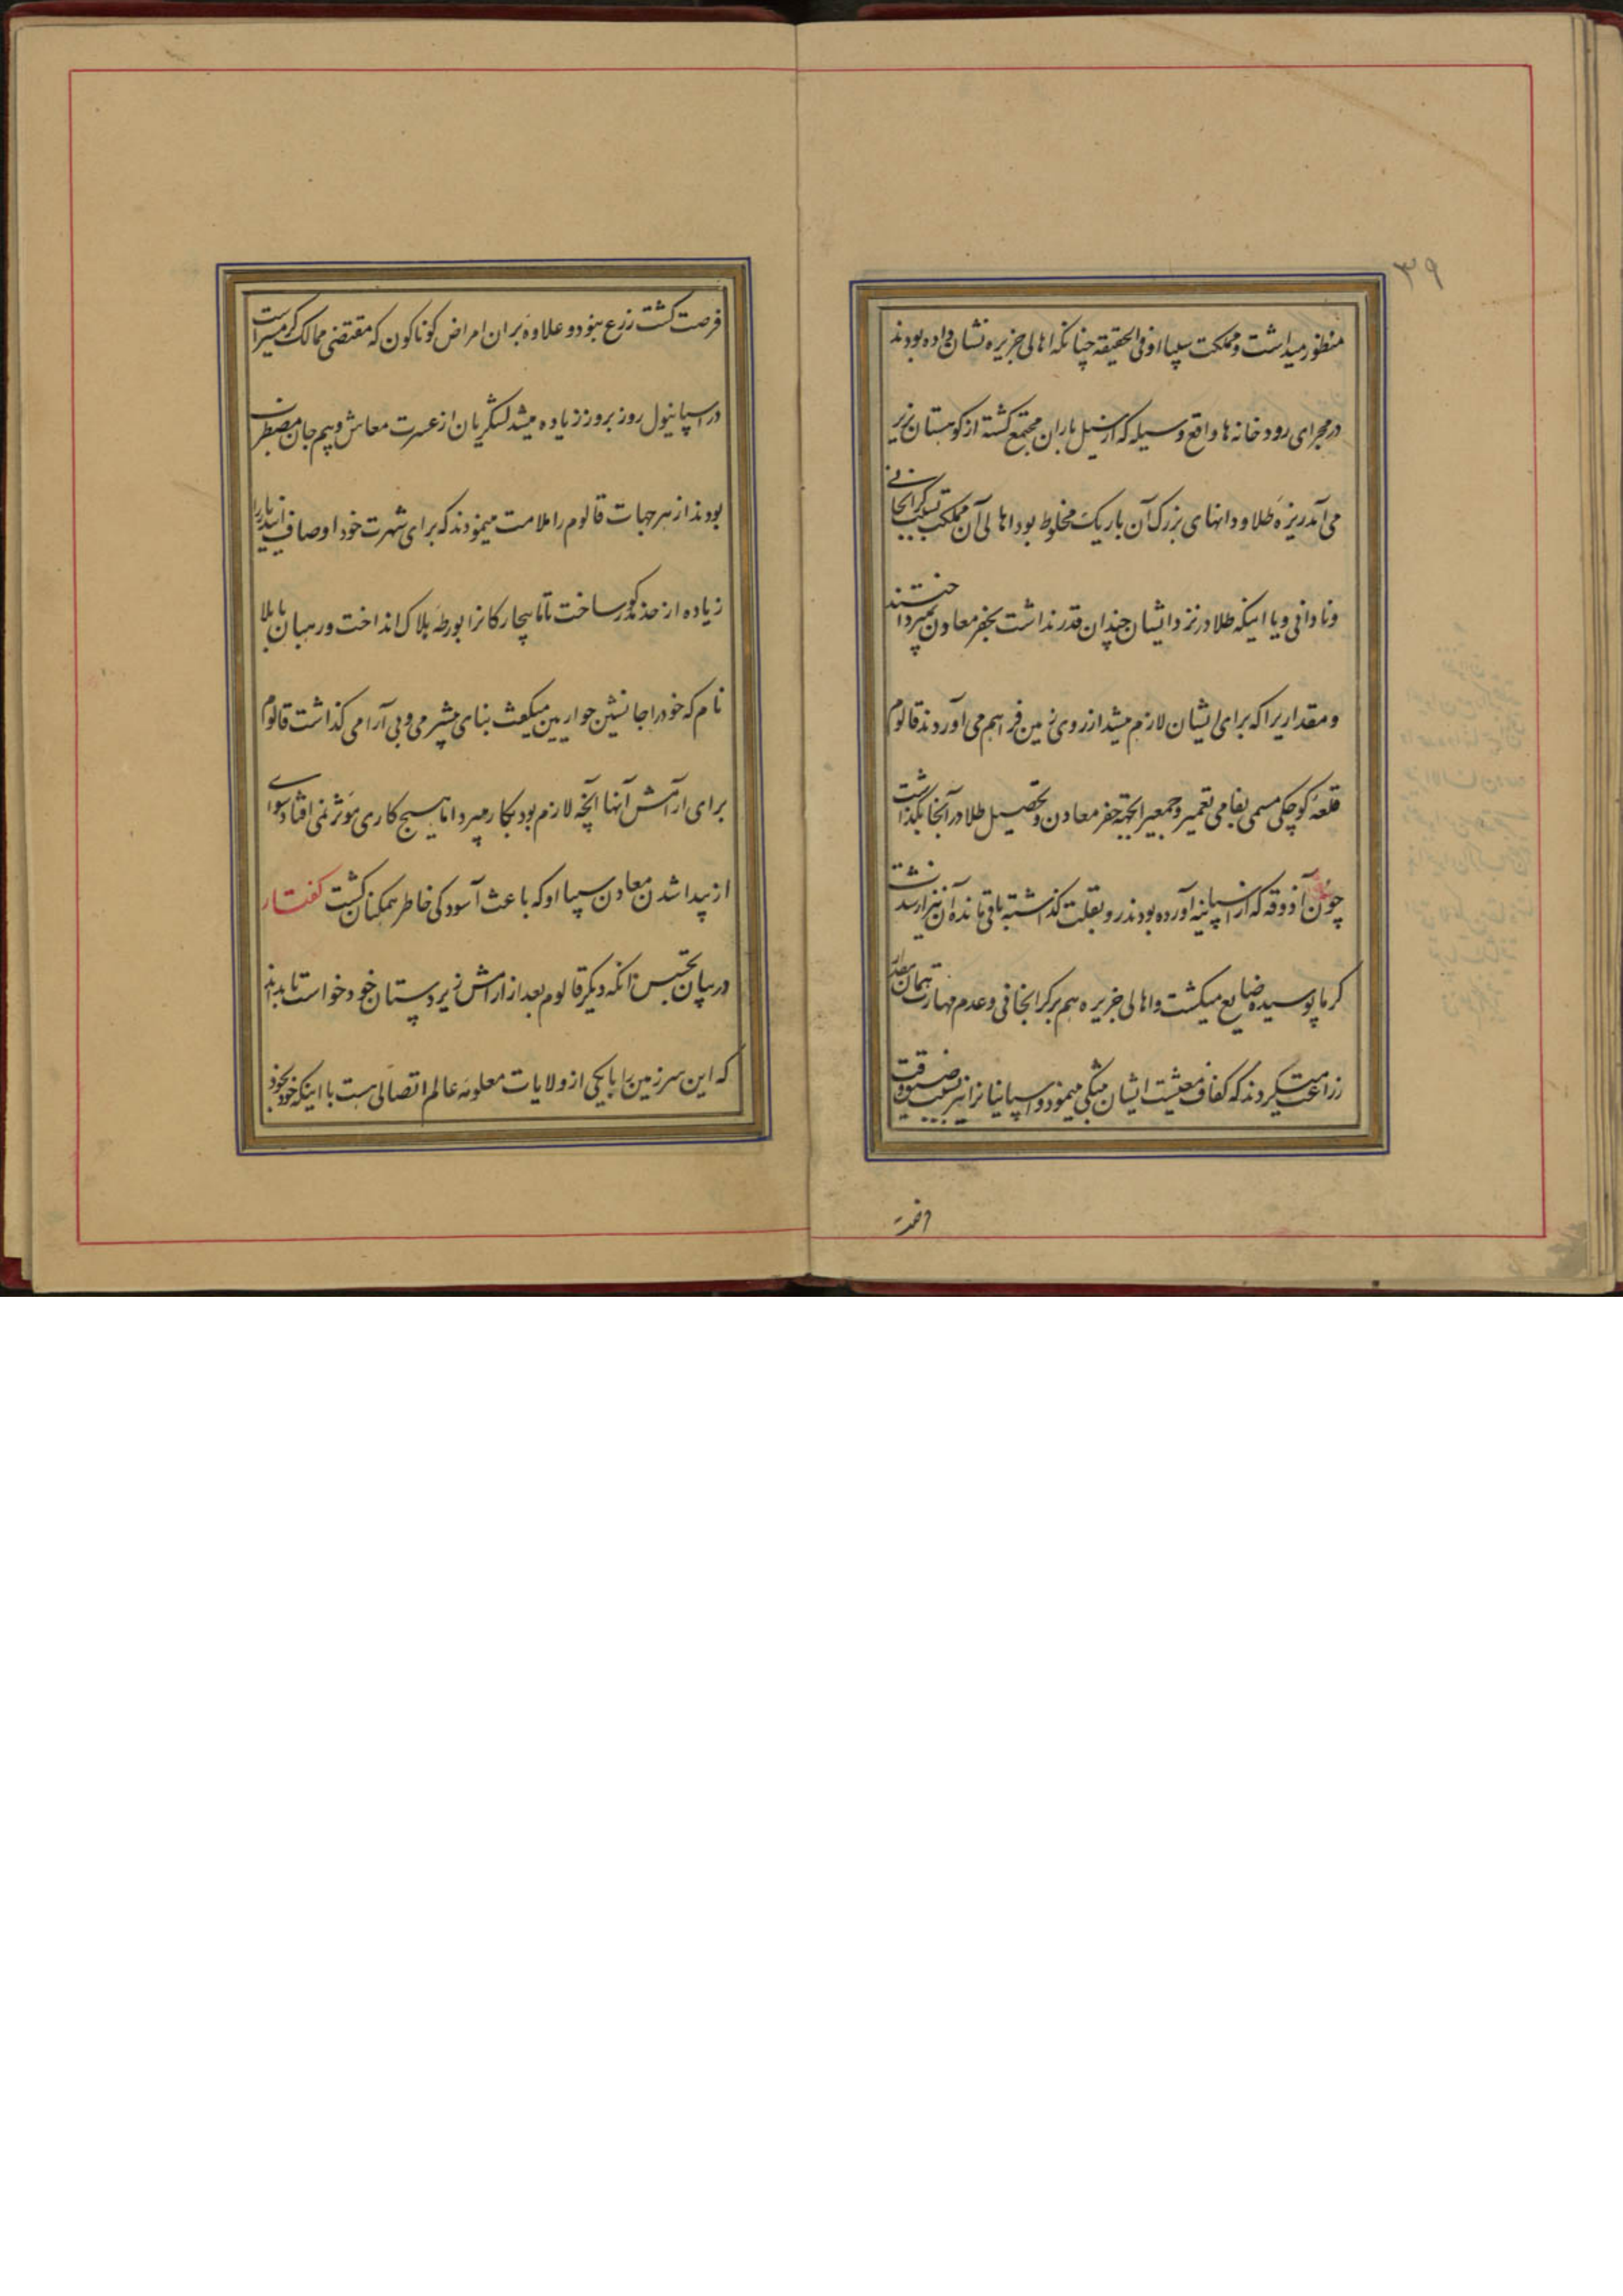 ۳۹
منظور میداشت و مملکت سیپااو فی الحقیقه چنانکه اهالی جزیره نشان داده بودند
در مجرای رودخانه ها واقع و سیله که از سیل باران مجتمع کشته از کوهستان بزیر
می آمد ریزه طلا و دانهای بزرک آن باریک مخلوط بود اهالی آن مملکت بسبب کرانجانی
و نادانی و یا اینکه طلا در نزد ایشان چندان قدر نداشت بحفر معادن نمیپرداختند
و مقداریرا که برای ایشان لازم میشد از روی زمین فراهم می آوردند قالوم
قلعه کوچکی مسمی بقامی تعمیر و جمعیرا بجهة حفر معادن و تحصیل طلا در آنجا بگذاشت
چون آذوقه که از اسپانیه آورده بودند رو بقلت گذاشته باقی مانده آن نیز از شدت
کرما پوسیده ضایع میکشت و اهالی جزیره هم بر کرانجانی و عدم مهارت همان مقدار
زراعت میکردند که کفاف معیشت ایشان میکی مینمود و اسپانیانرا نیز بسبب ضیق وقت
فرصت کشت زرع نبود و علاوه بران امراض کوناکون که مقتضی ممالک کرمسیر است
در اسپانیول روز بروز زیاده میشد لشکریان از عسرت معاش و بیم جان مضطرب
بودند از هر جهات قالوم را ملامت مینمودند که برای شهرت خود اوصاف اندیار را
زیاده از حد مذکور ساخت تا ما بیچارکانرا بورطه هلاک انداخت و رهبان بایلا
نام که خود را جانشین حواریین میکفت بنای بیشرمی و بی آرامی کذاشت قالوم
برای آرامش آنها آنچه لازم بود بکار میبرد اما هیچ کاری مؤثر نمی افتاد سوای
از پیدا شدن معادن سیپااو که باعث آسودکی خاطر همکنان کشت کفتار
در بیان تجسس آنکه دیکر قالوم بعد از آرامش زیردستان خود خواست تا بداند
که این سرزمین را بایکی از ولایات معلومه عالم اتصالی هست با اینکه خود بخود